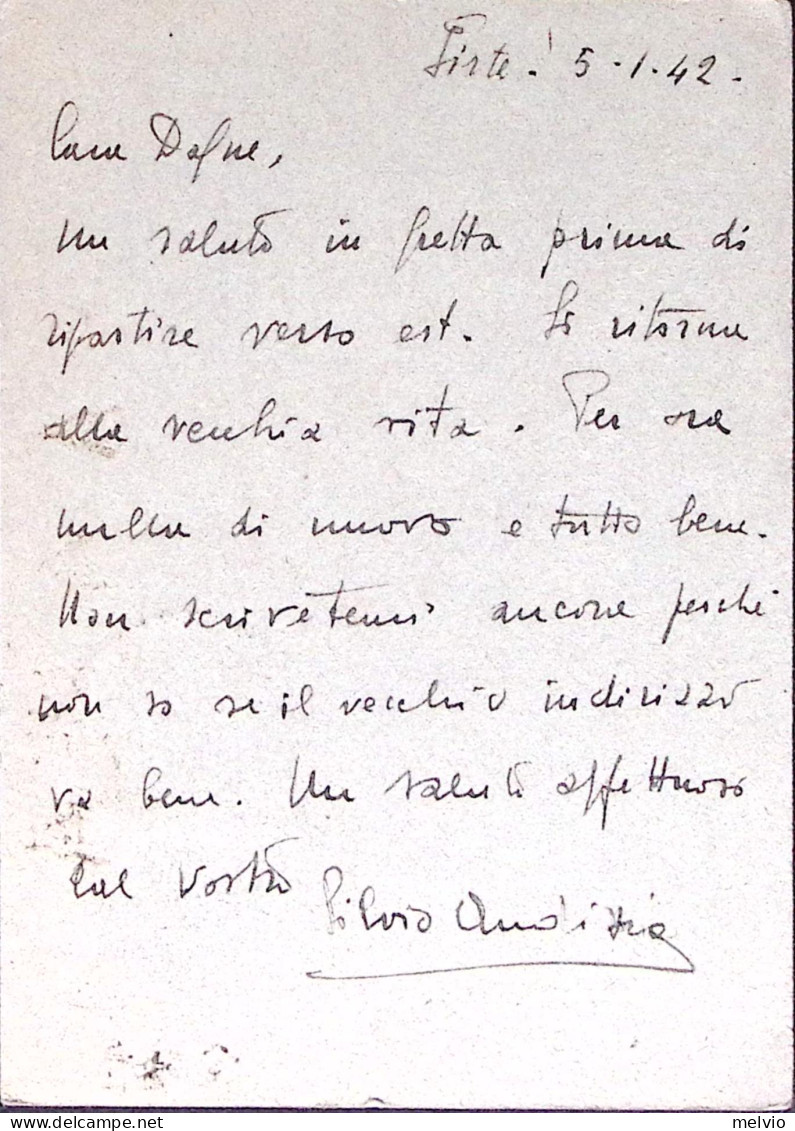 5.1.42.
Cara Dafne,
Un saluto in fretta prima di
ripartire verso est. Si ritorna
alla vecchia vita. Per ora
nulla di nuovo e tutto bene.
Non scrivetemi ancora perché
non so se il vecchio indirizzo
va bene. Un saluto affettuoso
dal vostro
Silvio
delcampe.net
melvio